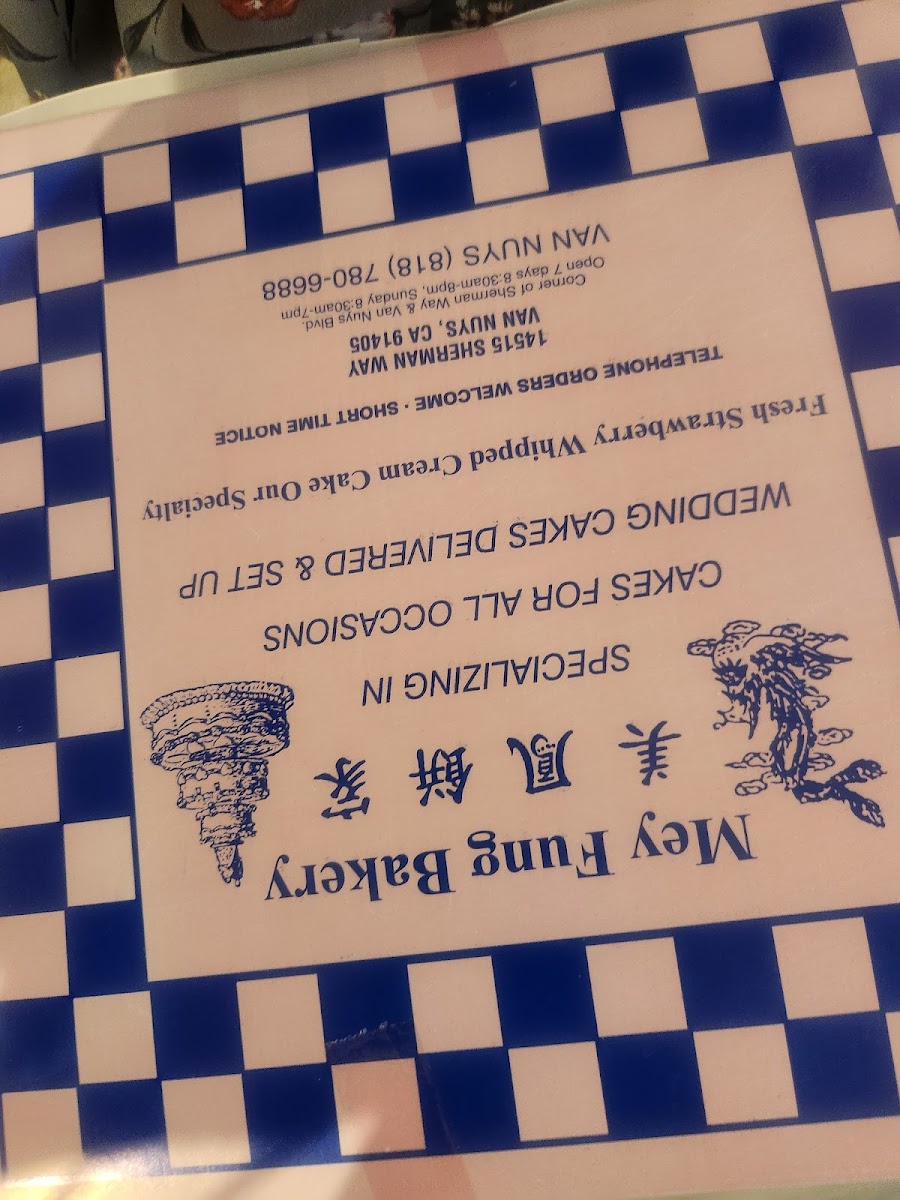 Mey Fung Bakery
美鳳餅家
SPECIALIZING IN
CAKES FOR ALL OCCASIONS
WEDDING CAKES DELIVERED & SET UP
Fresh Strawberry Whipped Cream Cake Our Specialty
TELEPHONE ORDERS WELCOME · SHORT TIME NOTICE
14515 SHERMAN WAY
VAN NUYS, CA 91405
Corner of Sherman Way & Van Nuys Blvd.
Open 7 days 8:30am-8pm, Sunday 8:30am-7pm
VAN NUYS (818) 780-6688